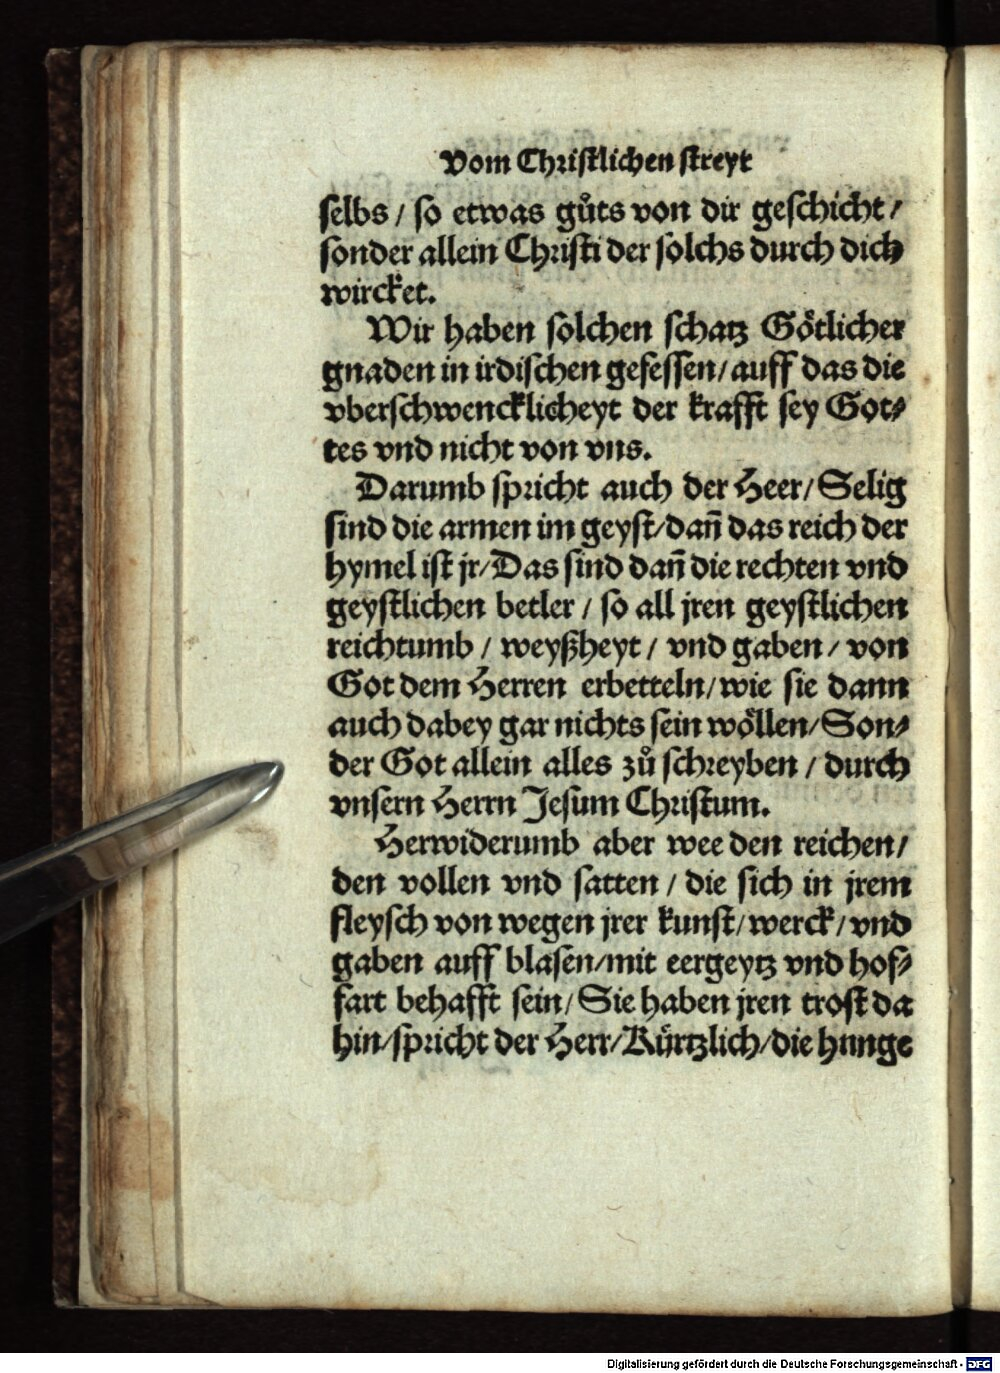 Vom Christlichen streyt
selbs / so etwas gůts von dir geschicht /
sonder allein Christi der solchs durch dich
wircket.
Wir haben solchen schatz Götlicher
gnaden in irdischen gefessen / auff das die
vberschwencklicheyt der krafft sey Got⸗
tes vnd nicht von vns.
Darumb spricht auch der Heer / Selig
sind die armen im geyst / dañ das reich der
hymel ist jr / Das sind dañ die rechten vnd
geystlichen betler / so all jren geystlichen
reichtumb / weyßheyt / vnd gaben / von
Got dem Herren erbetteln / wie sie dann
auch dabey gar nichts sein wöllen / Son⸗
der Got allein alles zů schreyben / durch
vnsern Herrn Jesum Christum.
Herwiderumb aber wee den reichen /
den vollen vnd satten / die sich in jrem
fleysch von wegen jrer kunst / werck / vnd
gaben auff blasen / mit eergeytz vnd hof⸗
fart behafft sein / Sie haben jren trost da
hin / spricht der Herr / Kürtzlich / die hunge
Digitalisierung gefördert durch die Deutsche Forschungsgemeinschaft - DFG